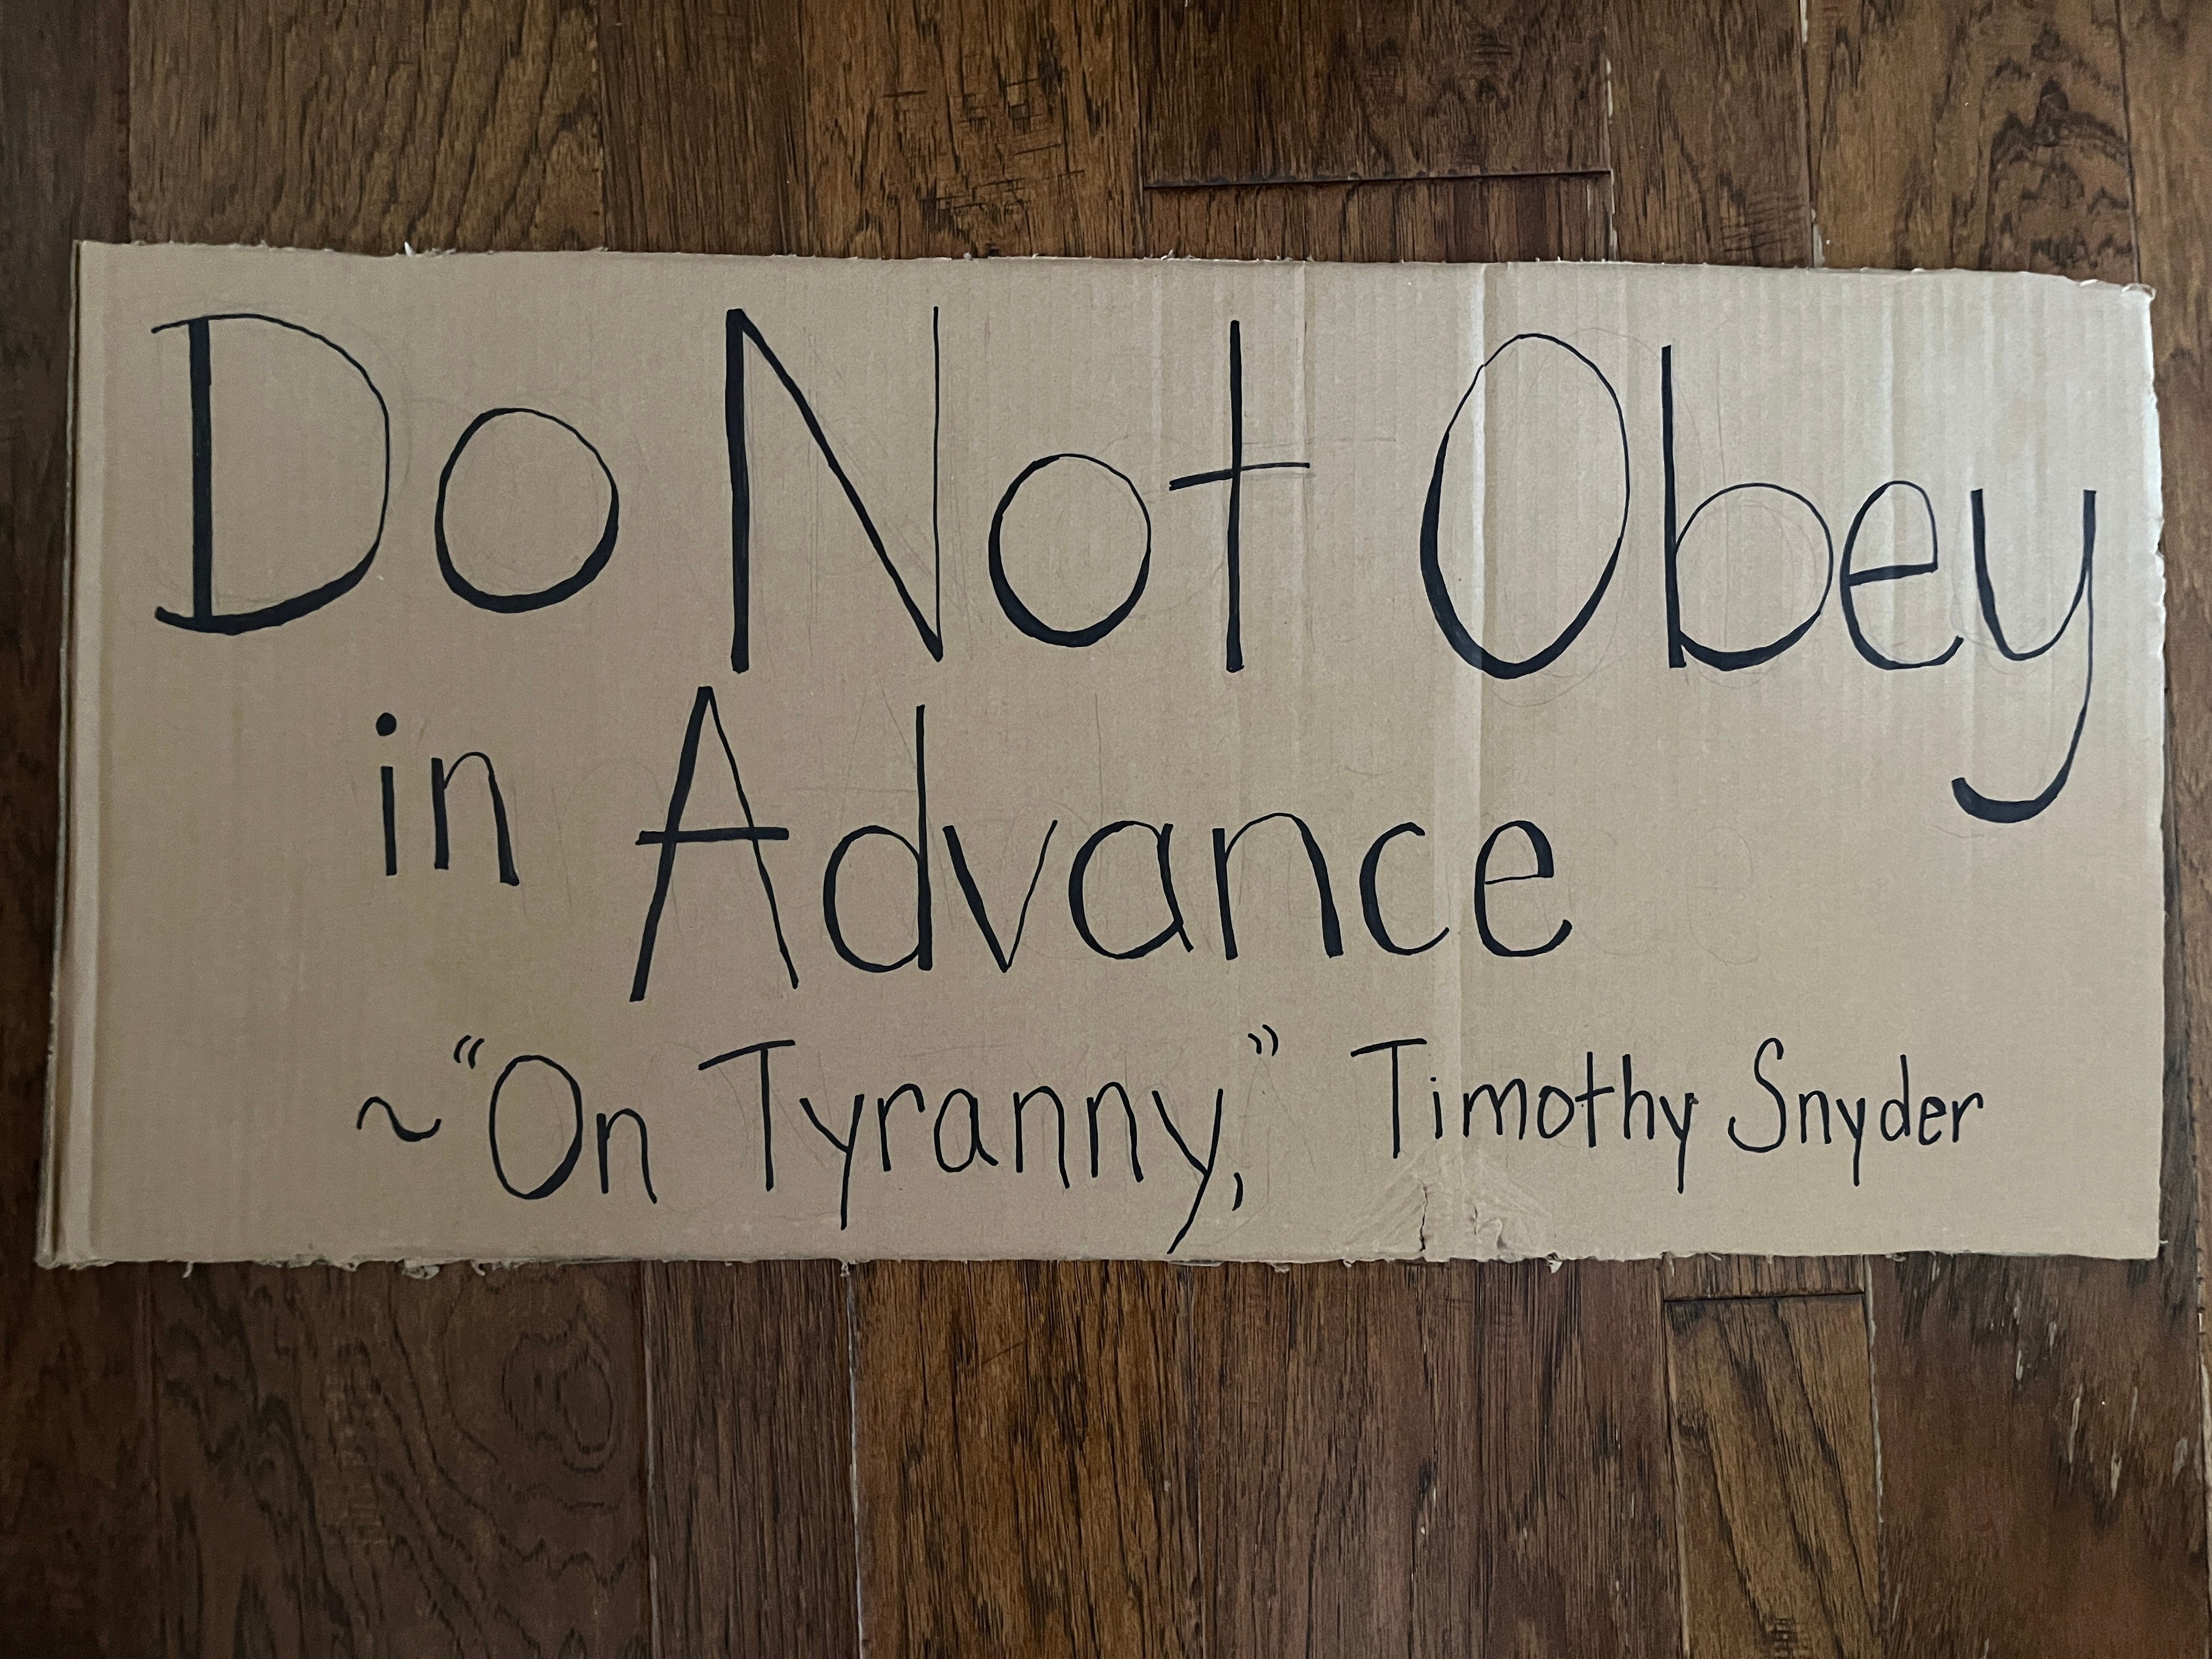 Do Not Obey
in Advance
~"On Tyranny," Timothy Snyder